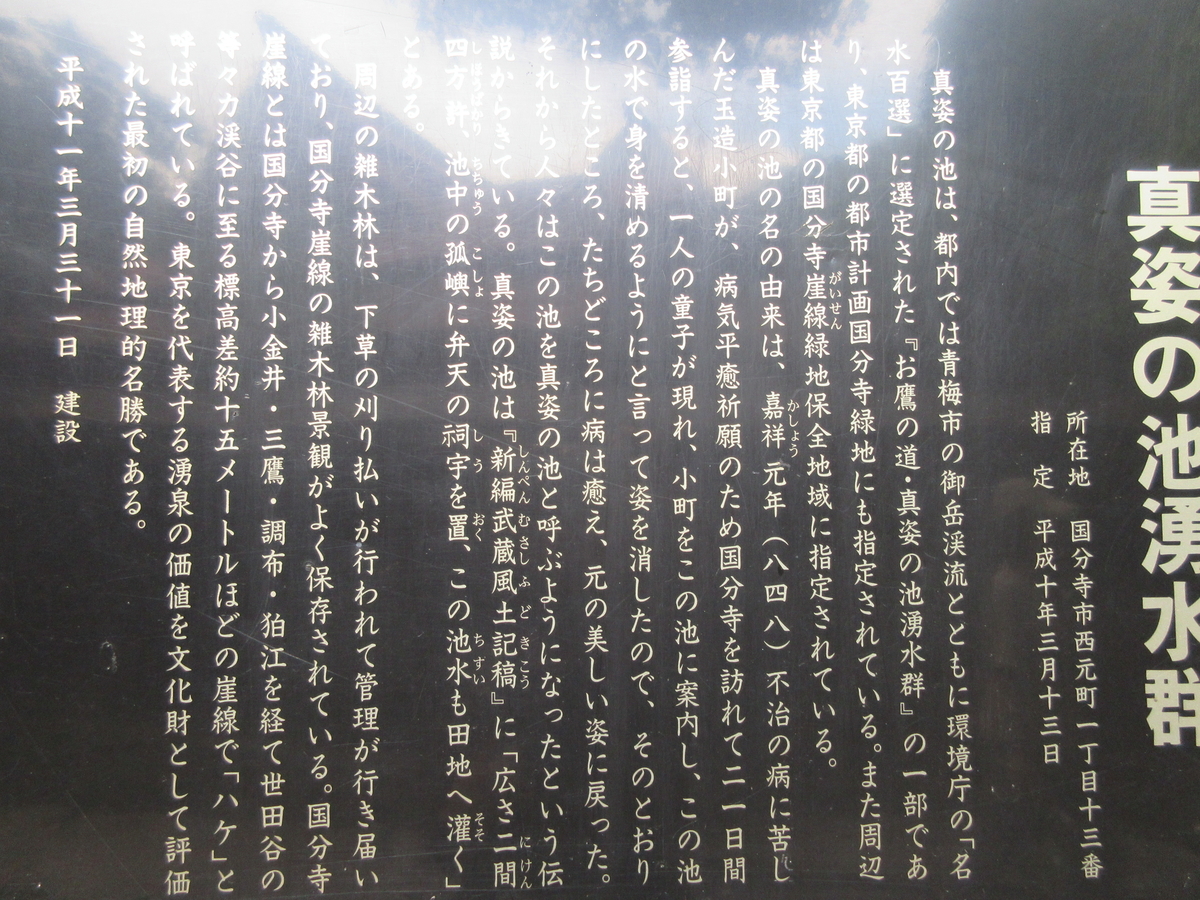 真姿の池湧水群
所在地　国分寺市西元町一丁目十三番
指　定　平成十年三月十三日
真姿の池は、都内では青梅市の御岳渓流とともに環境庁の「名
水百選」に選定された『お鷹の道・真姿の池湧水群』の一部であ
り、東京都の都市計画国分寺緑地にも指定されている。また周辺
は東京都の国分寺崖線緑地保全地域に指定されている。
真姿の池の名の由来は、嘉祥元年（八四八）不治の病に苦し
んだ玉造小町が、病気平癒祈願のため国分寺を訪れて二一日間
参詣すると、一人の童子が現れ、小町をこの池に案内し、この池
の水で身を清めるようにと言って姿を消したので、そのとおり
にしたところ、たちどころに病は癒え、元の美しい姿に戻った。
それから人々はこの池を真姿の池と呼ぶようになったという伝
説からきている。真姿の池は『新編武蔵風土記稿』に「広さ二間
四方許、池中の孤嶼に弁天の祠宇を置、この池水も田地へ灌く」
とある。
周辺の雑木林は、下草の刈り払いが行われて管理が行き届い
ており、国分寺崖線の雑木林景観がよく保存されている。国分寺
崖線とは国分寺から小金井・三鷹・調布・狛江を経て世田谷の
等々力渓谷に至る標高差約十五メートルほどの崖線で「ハケ」と
呼ばれている。東京を代表する湧泉の価値を文化財として評価
された最初の自然地理的名勝である。
平成十一年三月三十一日　建設